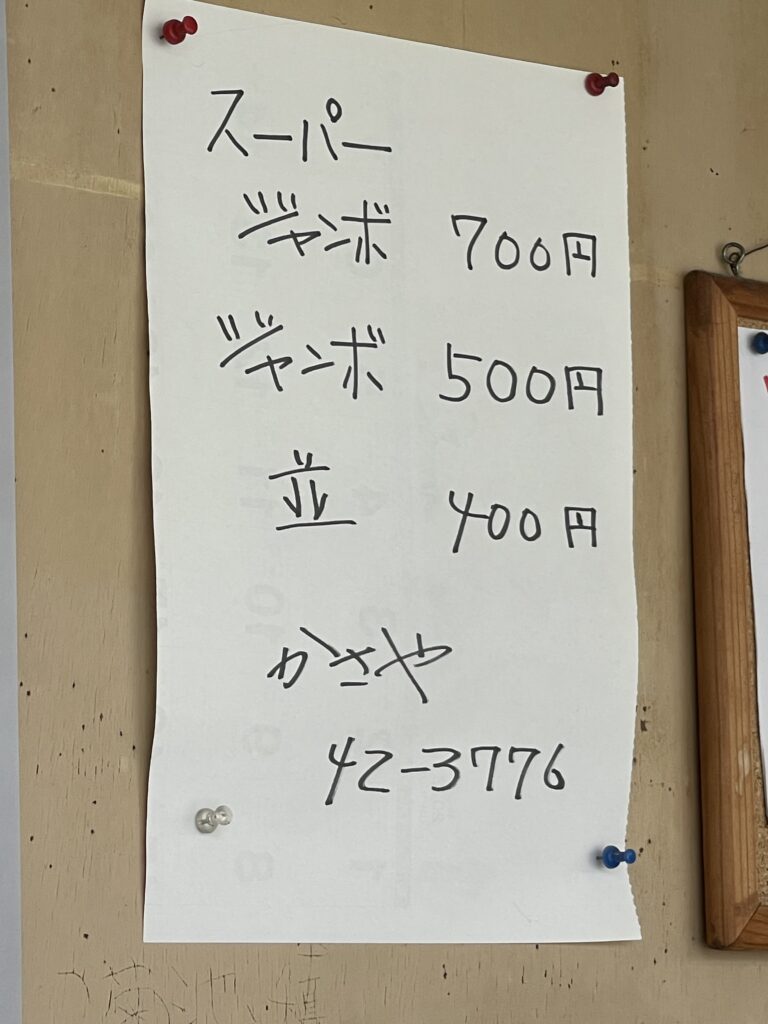 スーパー
ジャンボ 700円
ジャンボ 500円
並 400円
かさや
42-3776